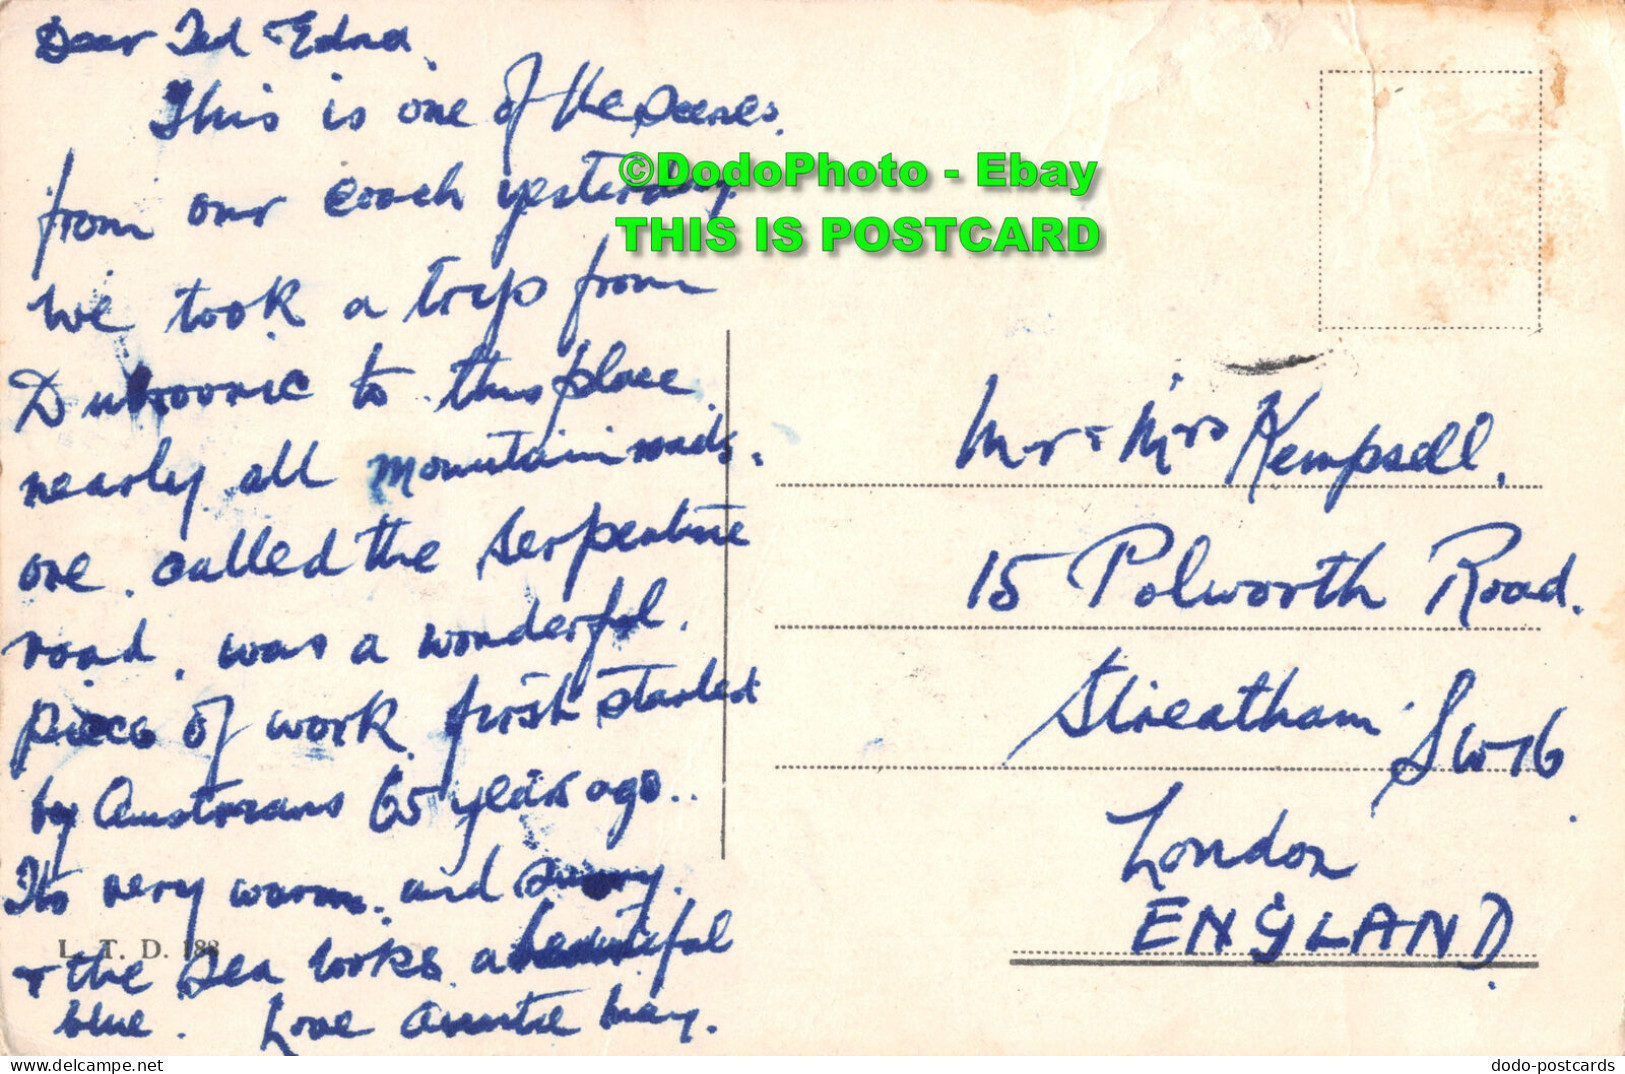 Dear Ted Edna.
This is one of the scenes.
from our coach yesterday
We took a trip from
Dubrovnic to this place.
nearly all mountain roads.
one. called the serpentine
road. was a wonderful.
piece of work. first started
by Austrians 65 years ago..
Its very warm. and sunny.
+ the sea looks a beautiful
blue. Love Auntie May.
L. T. D. 188
©DodoPhoto - Ebay
THIS IS POSTCARD
Mr + Mrs Kempsell.
15 Polworth Road.
Streatham SW16.
London
ENGLAND.
dodo-postcards